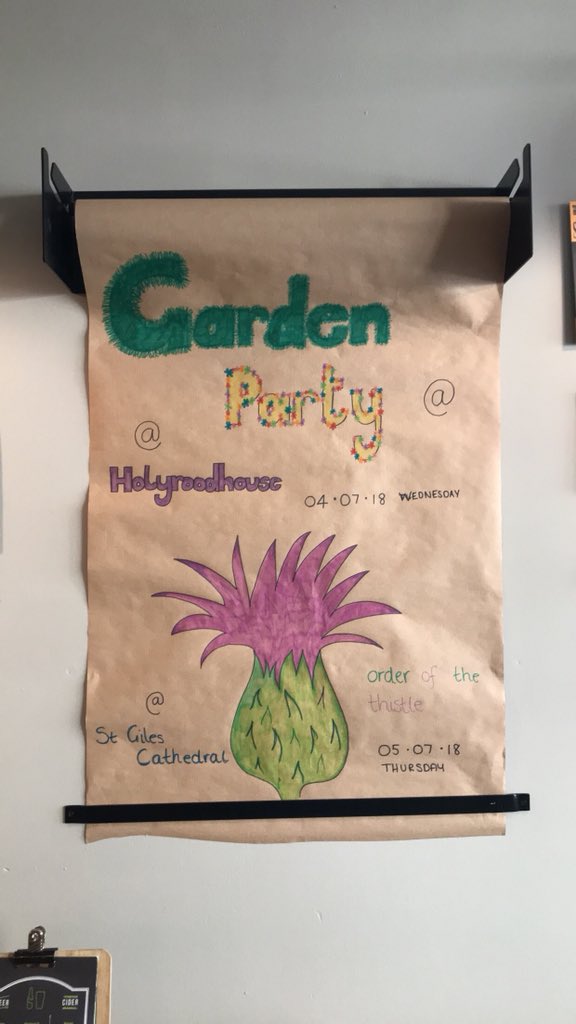 Garden
Party
@
@
Holyroodhouse
04·07·18 WEDNESDAY
order of the
thistle
@
St Giles
Cathedral
05·07·18
THURSDAY
CIDER